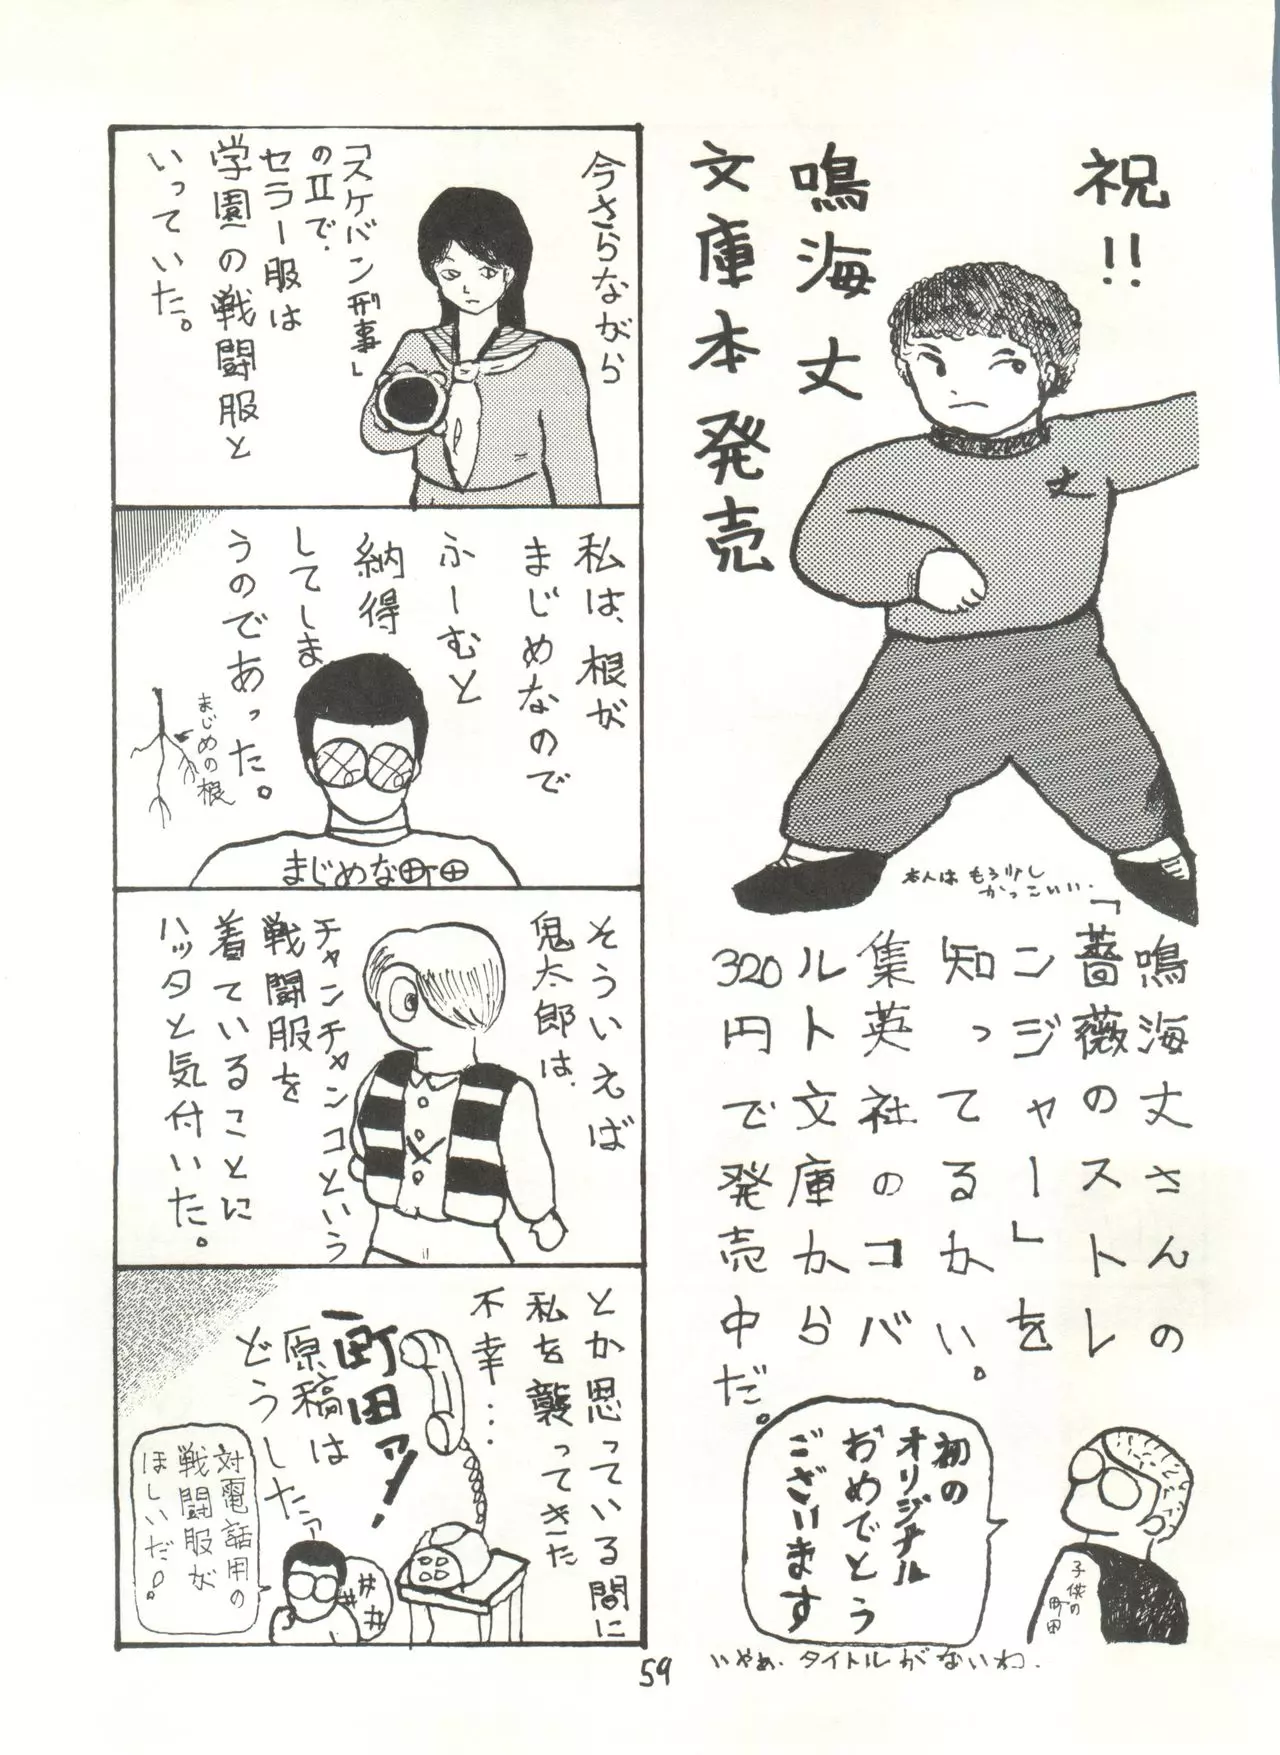 祝!!
鳴海丈
文庫本発売
丈
本人はもう少し
かっこいい.
鳴海丈さんの
「薔薇のストレ
ンジャー」を
知ってるかい。
集英社のコバ
ルト文庫から
320円で発売中だ。
初の
オリジナル
おめでとう
ございます
子供の
町田
いやぁ、タイトルがないわ.
今さらながら
「スケバン刑事」
のⅡで、
セラー服は
学園の戦闘服と
いっていた。
私は、根が
まじめなので
ふーむと
納得
してしま
うのであった。
まじめの根
まじめな町田
そういえば
鬼太郎は、
チャンチャンコという
戦闘服を
着ていることに
ハッタと気付いた。
とか思っている間に
私を襲ってきた
不幸…
町田ァッ!
原稿は
どうしたァ
対電話用の
戦闘服が
ほしいだ!
59